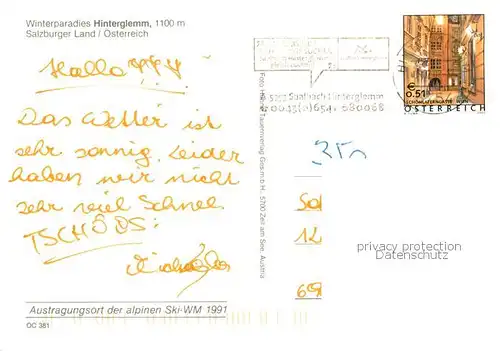 Winterparadies Hinterglemm, 1100 m
Salzburger Land / Österreich
Hallo
Das Wetter ist
sehr sonnig. Leider
haben wir nicht
sehr viel Schnee.
TSCHÖDS:
Austragungsort der alpinen Ski-WM 1991
OC 381
Tauernverlag Ges.m.b.H., 5700 Zell am See, Austria
Saalbach Hinterglemm
€ 0,51
SCHÖNLATERNGASSE, WIEN
ÖSTERREICH
12
privacy protection
Datenschutz